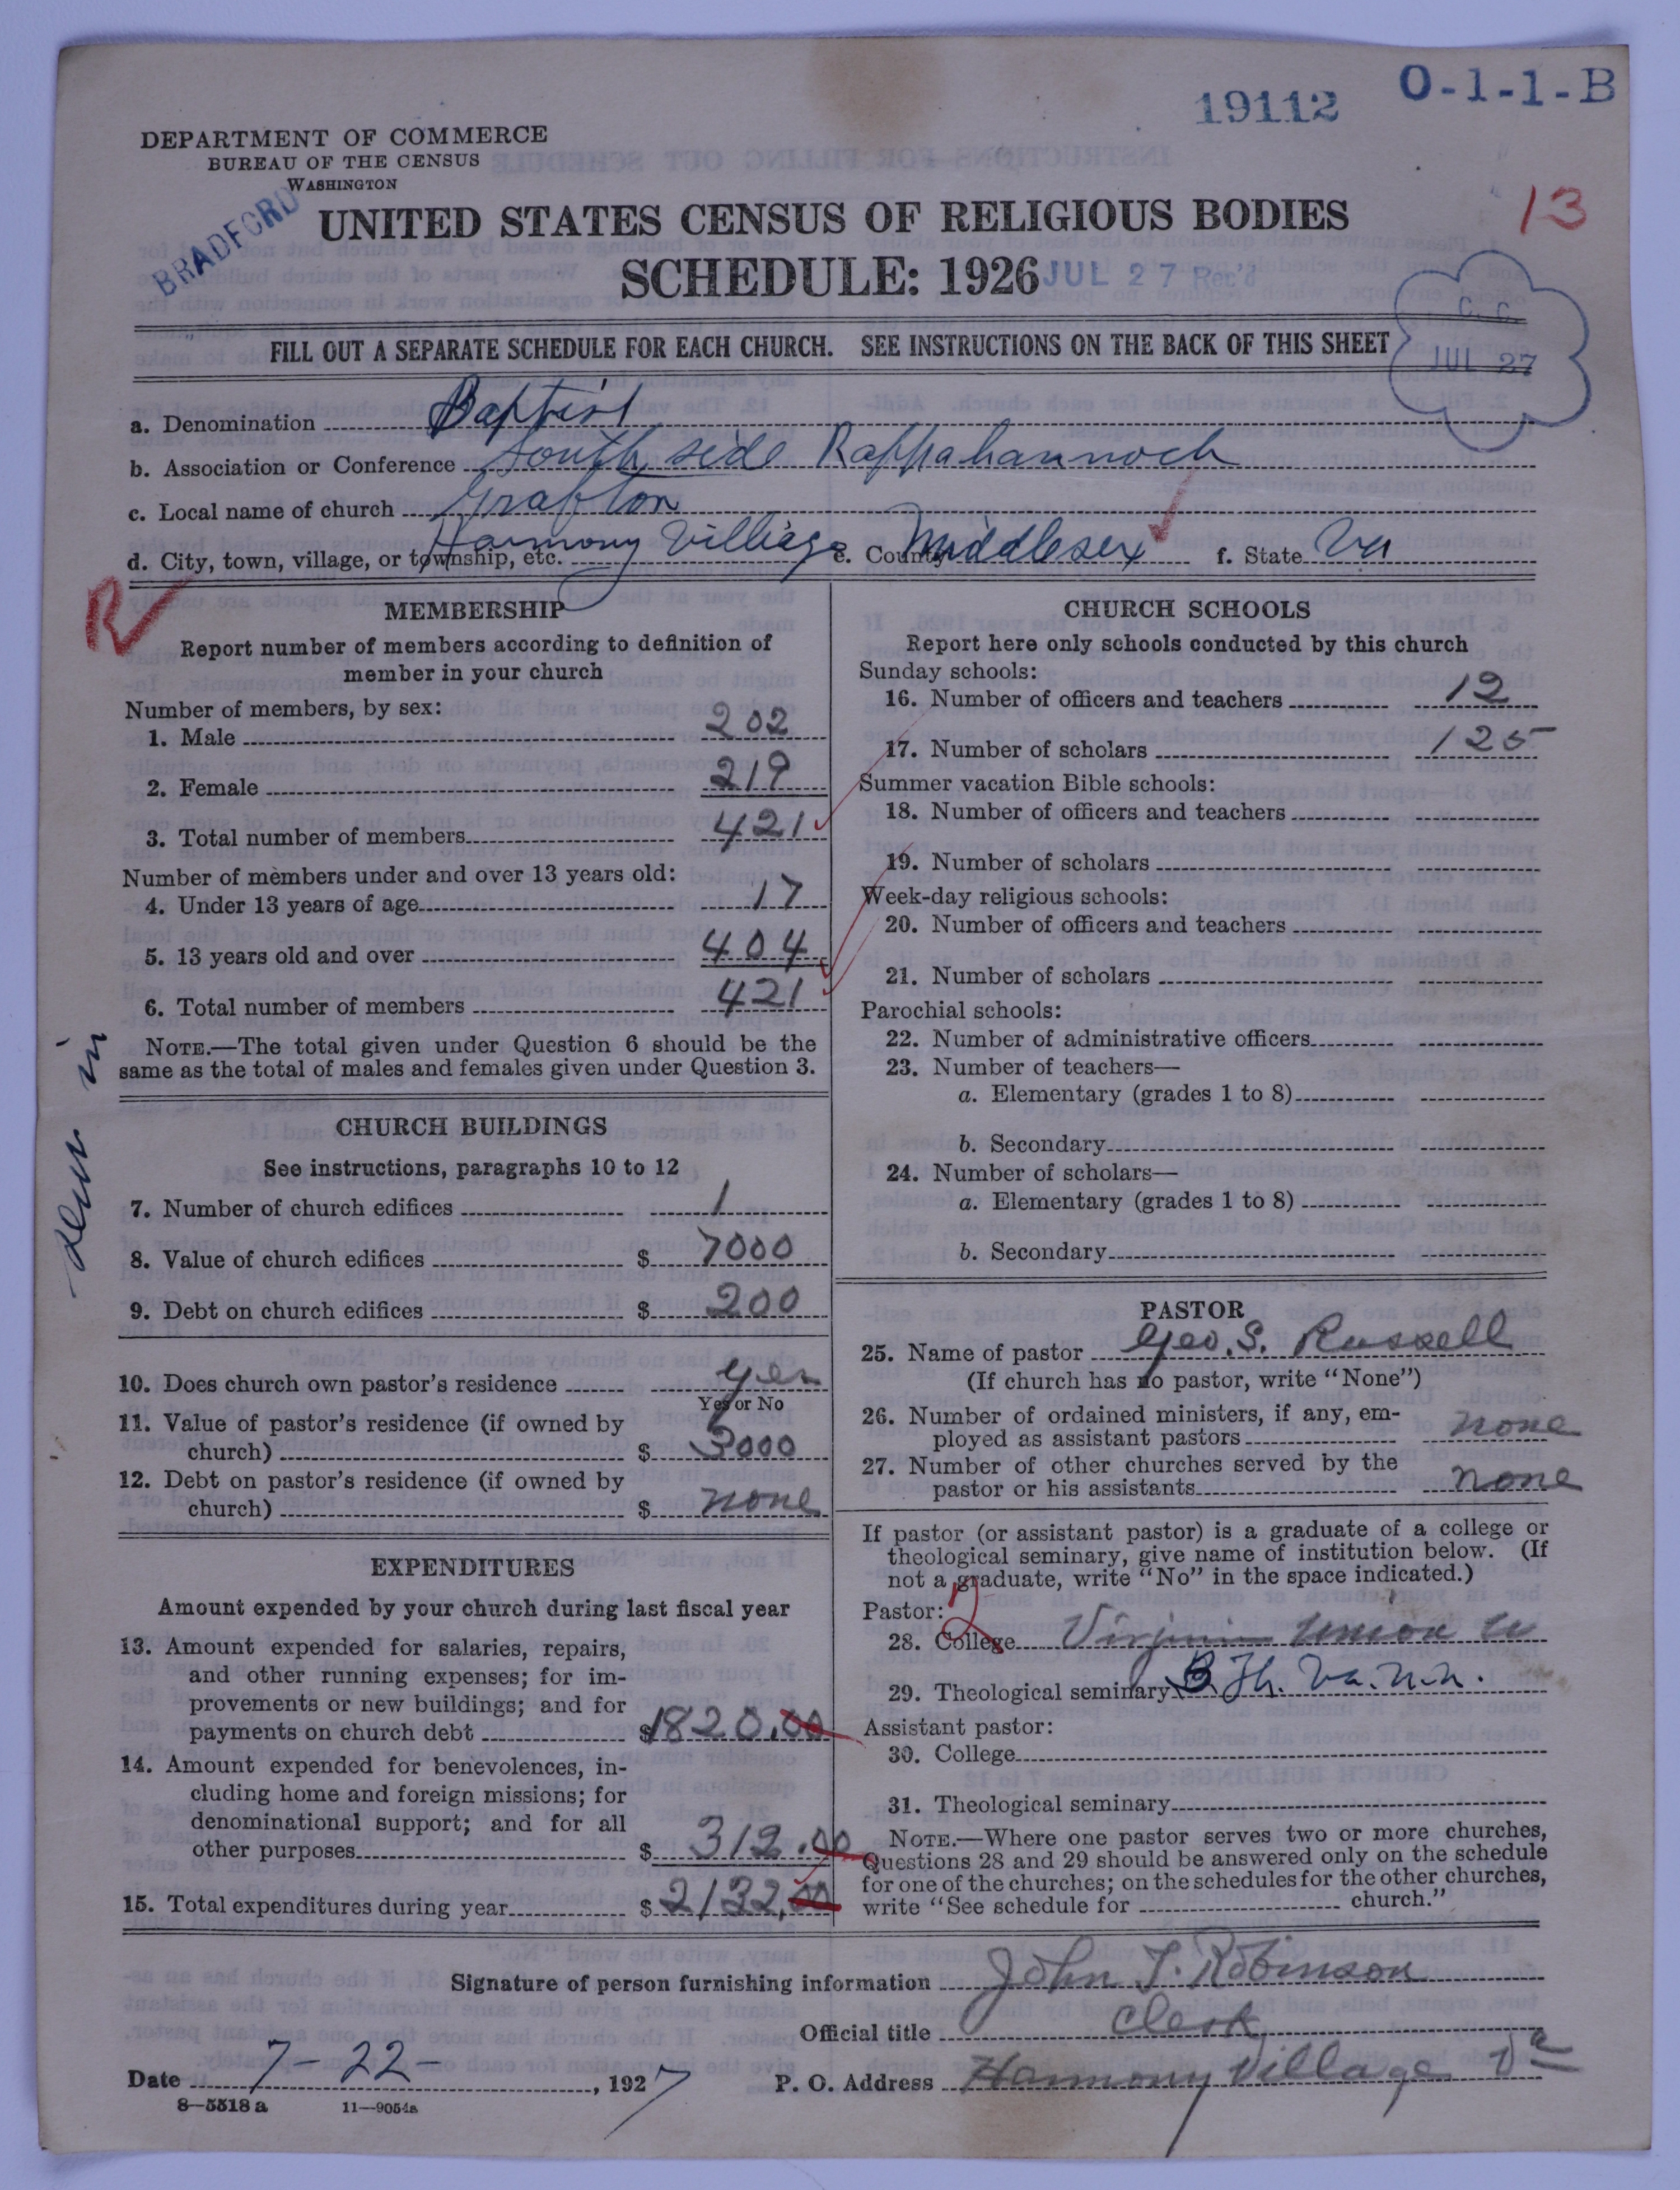 19112
O-1-1-B
DEPARTMENT OF COMMERCE
BUREAU OF THE CENSUS
WASHINGTON
BRADFORD
13
UNITED STATES CENSUS OF RELIGIOUS BODIES
SCHEDULE: 1926
JUL 27 Rec'd
C. C.
JUL 27
FILL OUT A SEPARATE SCHEDULE FOR EACH CHURCH. SEE INSTRUCTIONS ON THE BACK OF THIS SHEET
a. Denomination Baptist
b. Association or Conference South side Rappahannock
c. Local name of church Grafton
d. City, town, village, or township, etc. Harmony Villiage e. County Middlesex f. State Va
R
MEMBERSHIP
Report number of members according to definition of
member in your church
Number of members, by sex:
1. Male 202
2. Female 219
3. Total number of members 421
Number of members under and over 13 years old:
4. Under 13 years of age 17
5. 13 years old and over 404
6. Total number of members 421
NOTE.—The total given under Question 6 should be the
same as the total of males and females given under Question 3.
CHURCH BUILDINGS
See instructions, paragraphs 10 to 12
7. Number of church edifices 1
8. Value of church edifices $ 7000
9. Debt on church edifices $ 200
10. Does church own pastor's residence yes
Yes or No
11. Value of pastor's residence (if owned by
church) $ 3000
12. Debt on pastor's residence (if owned by
church) $ none
EXPENDITURES
Amount expended by your church during last fiscal year
13. Amount expended for salaries, repairs,
and other running expenses; for im-
provements or new buildings; and for
payments on church debt $1820.00
14. Amount expended for benevolences, in-
cluding home and foreign missions; for
denominational support; and for all
other purposes $ 312.00
15. Total expenditures during year $ 2132,00
CHURCH SCHOOLS
Report here only schools conducted by this church
Sunday schools:
16. Number of officers and teachers 12
17. Number of scholars 125
Summer vacation Bible schools:
18. Number of officers and teachers
19. Number of scholars
Week-day religious schools:
20. Number of officers and teachers
21. Number of scholars
Parochial schools:
22. Number of administrative officers
23. Number of teachers—
a. Elementary (grades 1 to 8)
b. Secondary
24. Number of scholars—
a. Elementary (grades 1 to 8)
b. Secondary
PASTOR
25. Name of pastor Geo. S. Russell
(If church has no pastor, write "None")
26. Number of ordained ministers, if any, em-
ployed as assistant pastors none
27. Number of other churches served by the
pastor or his assistants none
If pastor (or assistant pastor) is a graduate of a college or
theological seminary, give name of institution below. (If
not a graduate, write "No" in the space indicated.)
Pastor: 2
28. College Virginia Union U
29. Theological seminary B. Th. Va. U.
Assistant pastor:
30. College
31. Theological seminary
NOTE.—Where one pastor serves two or more churches,
Questions 28 and 29 should be answered only on the schedule
for one of the churches; on the schedules for the other churches,
write "See schedule for church."
Signature of person furnishing information John T. Robinson
Official title Clerk
Date 7-22-, 1927 P. O. Address Harmony Village Va
8—5518 a 11—9054a